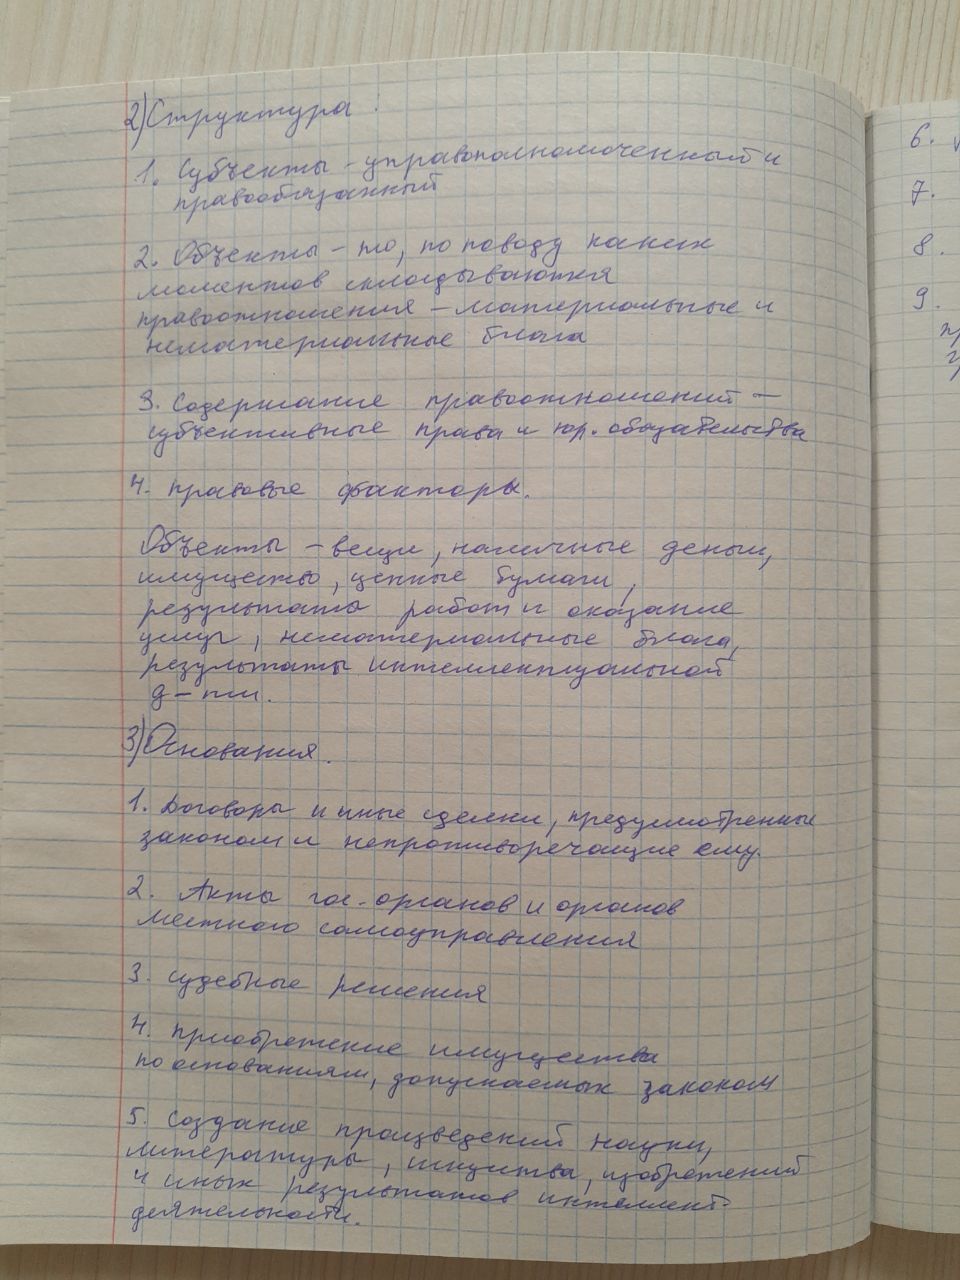 2) Структура:
1. Субъекты - управополномоченный и
правообязанный
2. Объекты - то, по поводу каких
моментов складываются
правоотношения - материальные и
нематериальные блага
3. Содержание правоотношений -
субъективные права и юр. обязательства
4. правовые факторы.
Объекты - вещи, наличные деньги,
имущество, ценные бумаги,
результаты работ и оказание
услуг, нематериальные блага,
результаты интеллектуальной
д-ти.
3) Основания.
1. Договоры и иные сделки, предусмотренные
законом и непротиворечащие ему.
2. Акты гос. органов и органов
местного самоуправления
3. судебные решения
4. приобретение имущества
по основаниям, допускаемых законом
5. создание произведений науки,
литературы, искуства, изобретений
и иных результатов интеллект.
деятельности.
6.
7.
8.
9.